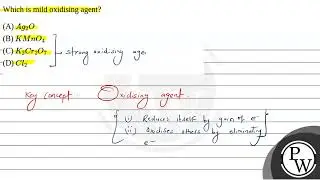 Which is mild oxidising agent?
(A) Ag₂O
(B) KMnO₄
(C) K₂Cr₂O₇ strong oxidising agen
(D) Cl₂
Key concept Oxidising agent
(i) Reduces itself by gain of e⁻
(ii) Oxidises others by eliminating
e⁻
PW